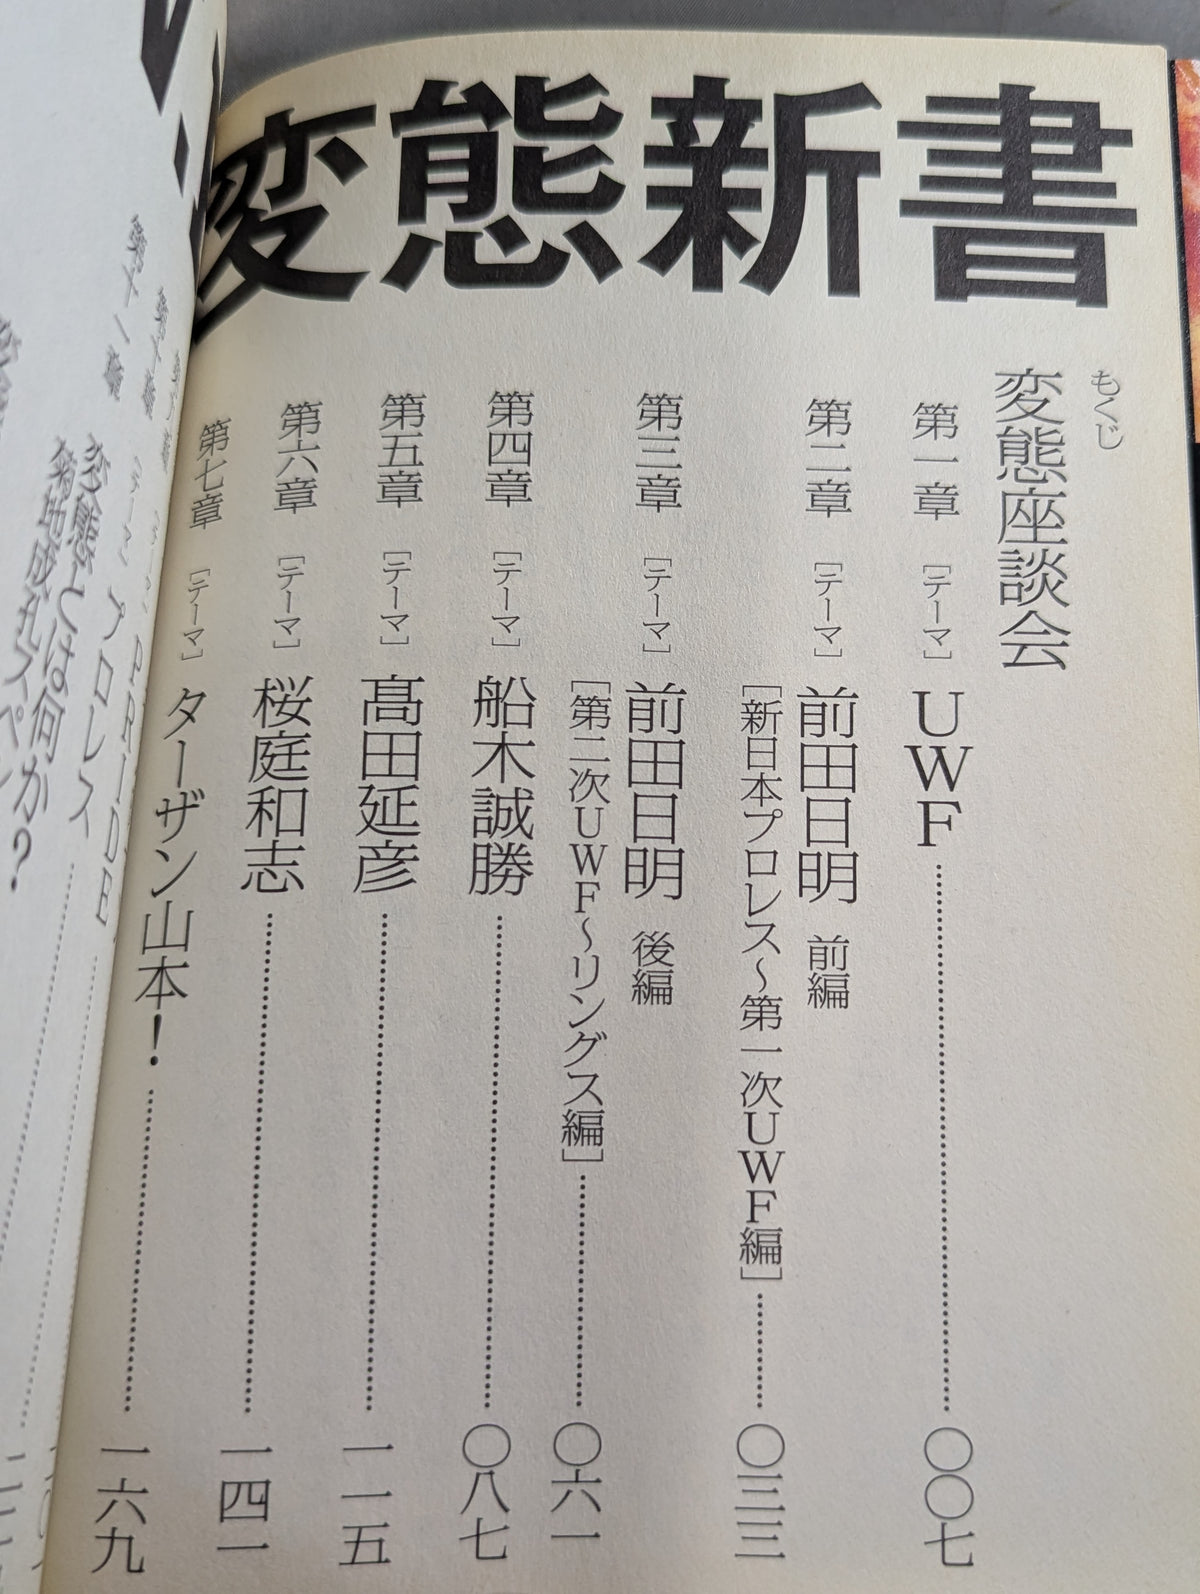 変態新書
もくじ
変態座談会
第一章 [テーマ] UWF……〇〇七
第二章 [テーマ] 前田日明 前編
[新日本プロレス〜第一次UWF編]……〇三三
第三章 [テーマ] 前田日明 後編
[第二次UWF〜リングス編]……〇六一
第四章 [テーマ] 船木誠勝……〇八七
第五章 [テーマ] 髙田延彦……一一五
第六章 [テーマ] 桜庭和志……一四一
第七章 [テーマ] ターザン山本!……一六九
プロレス
変態とは何か?